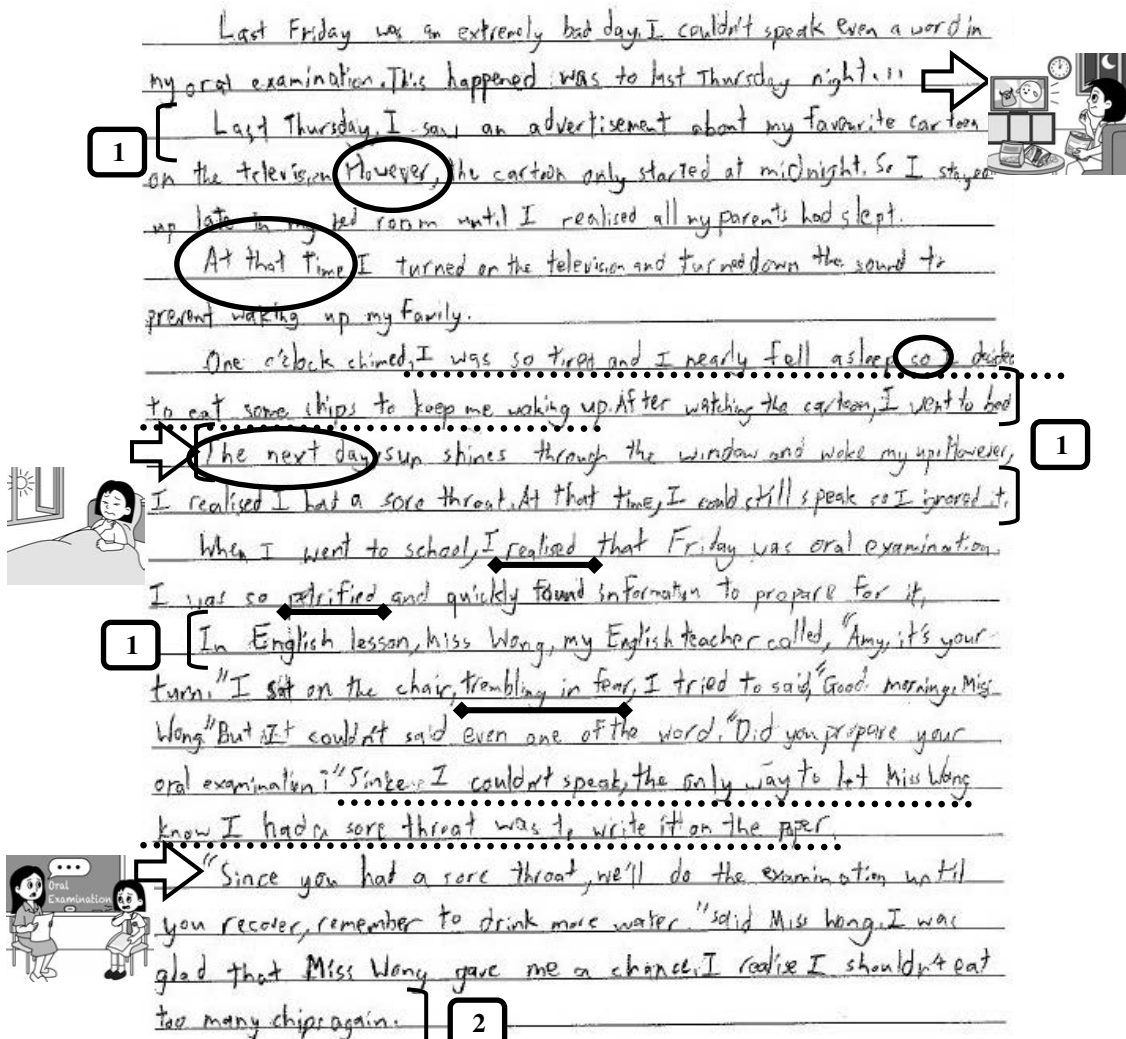 Last Friday was an extremely bad day. I couldn't speak even a word in
my oral examination. This happened was to last Thursday night...
Last Thursday, I saw an advertisement about my favourite cartoon
1
on the television. However, the cartoon only started at midnight. So I stayed
up late in my bed room until I realised all my parents had slept.
At that time I turned on the television and turned down the sound to
prevent waking up my family.
One o'clock chimed, I was so tired and I nearly fell asleep so I decided
to eat some chips to keep me waking up. After watching the cartoon, I went to bed
1
The next day, sun shines through the window and woke my up. However,
I realised I had a sore throat. At that time, I could still speak so I ignored it.
When I went to school, I realised that Friday was oral examination.
I was so petrified and quickly found information to propare for it,
1
In English lesson, Miss Wong, my English teacher called, "Amy, it's your
turn." I sat on the chair, trembling in fear, I tried to said, "Good morning, Miss
Wong" But I couldn't said even one of the word. "Did you propare your
oral examination?" Since I couldn't speak, the only way to let Miss Wong
know I had a sore throat was to write it on the paper.
...
Oral
Examination
"Since you had a sore throat, we'll do the examination until
you recover, remember to drink more water." said Miss Wong. I was
glad that Miss Wong gave me a chance. I realise I shouldn't eat
too many chips again.
2